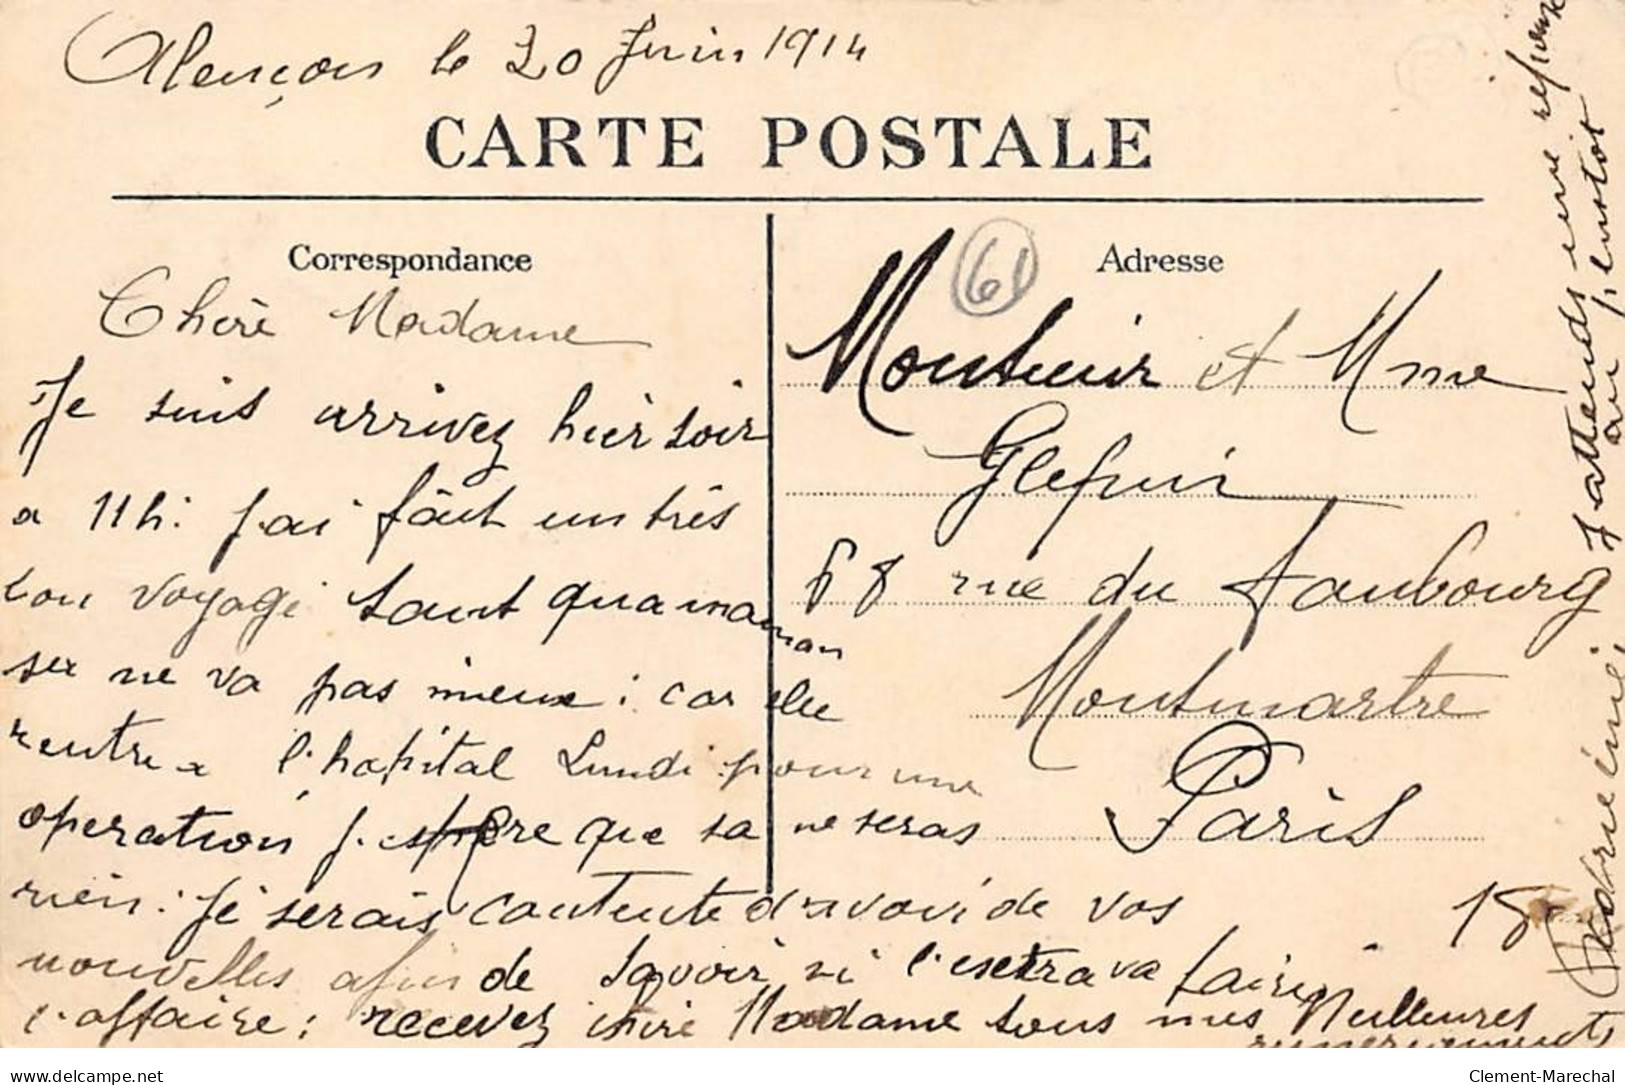 Alençon le 20 Juin 1914
CARTE POSTALE
Correspondance
Chère Madame
Je suis arrivez hier soir
a 11h. j.ai fâait un très
bon voyage tant qua maman
ser ne va pas mieux : car elle
rentre a l'hopital Lundi pour une
operation j. espere que sa ne seras
rien : Je serais contente d'avoir de vos
nouvelles afin de savoir si l'extra va faire
l'affaire : recevez chère Madame tous mes Meilleures
remerciements
61
Adresse
Monsieur et Mme
Glepin
68 rue du Faubourg
Montmartre
Paris
18
J attends une réponse
au plustot
Clement-Marechal